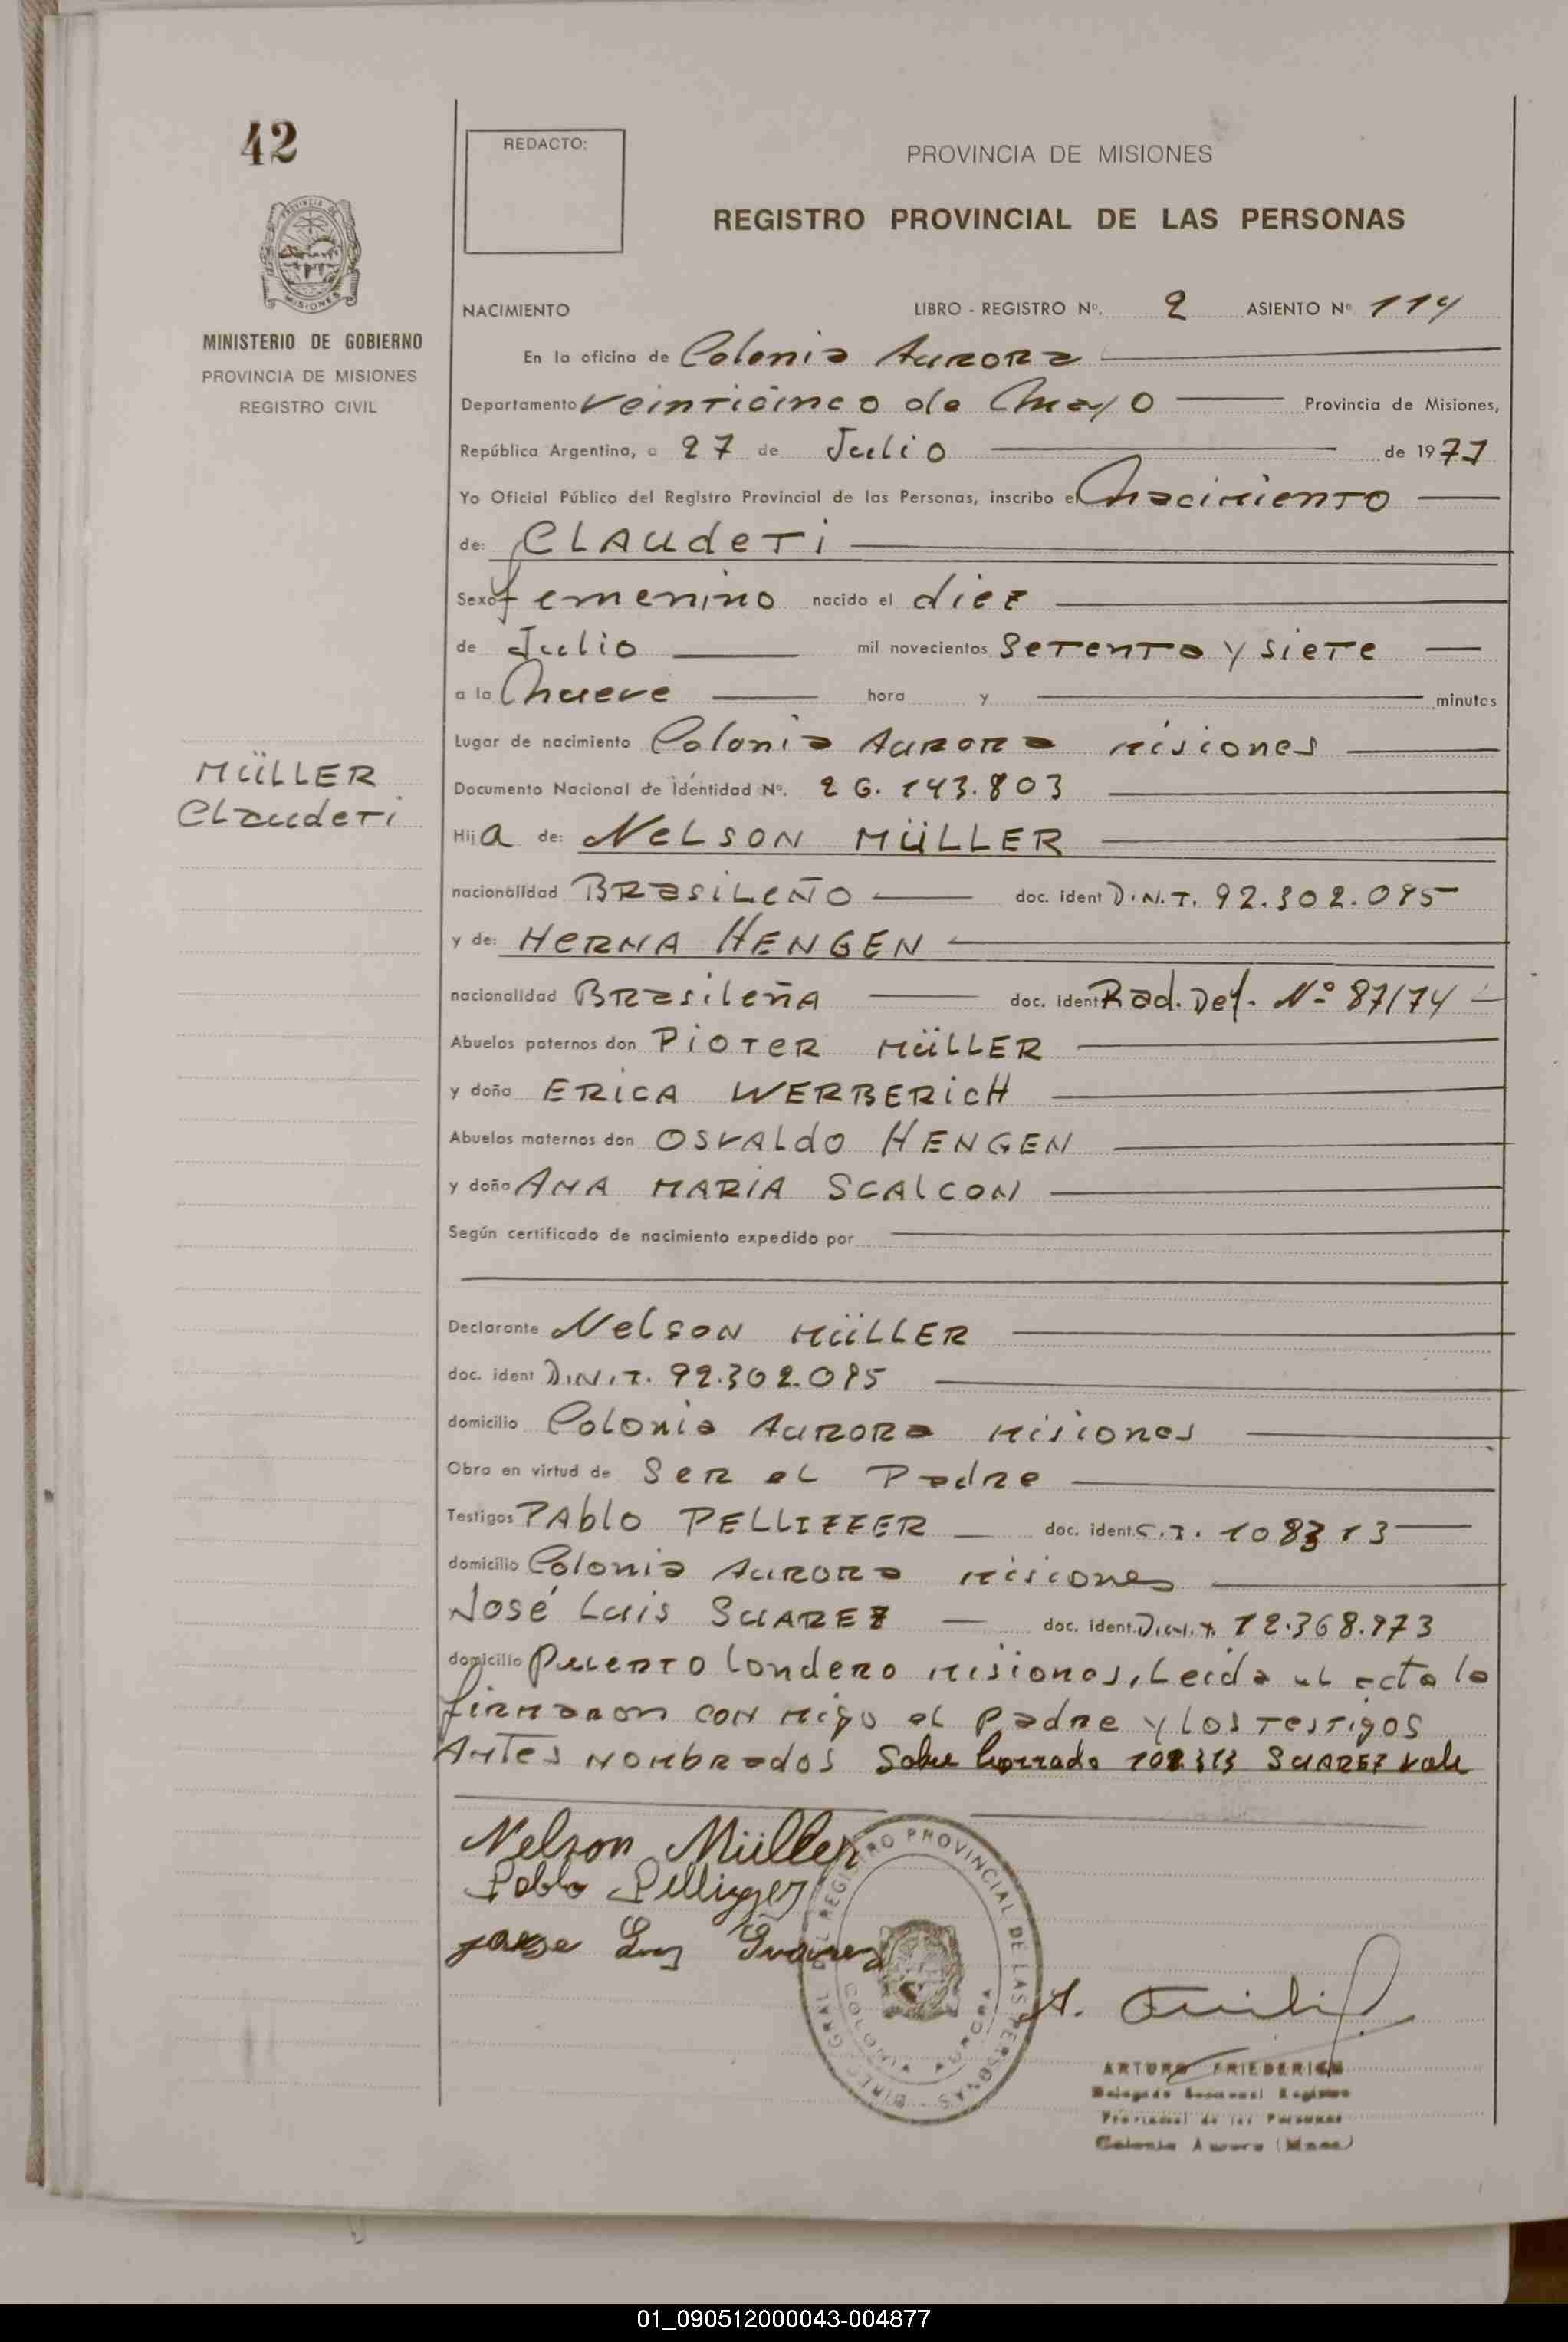 42
REDACTO:
PROVINCIA DE MISIONES
REGISTRO PROVINCIAL DE LAS PERSONAS
MINISTERIO DE GOBIERNO
PROVINCIA DE MISIONES
REGISTRO CIVIL
NACIMIENTO LIBRO - REGISTRO Nº. 2 ASIENTO Nº 114
En la oficina de Colonia Aurora
Departamento veinticinco de Mayo Provincia de Misiones,
República Argentina, a 27 de Julio de 1977
Yo Oficial Público del Registro Provincial de las Personas, inscribo el Nacimiento
de: CLAudeTi
Sexo femenino nacido el diez
de Julio mil novecientos setenta y siete
a la Nueve hora y minutos
Lugar de nacimiento Colonia Aurora Misiones
MÜLLER
Claudeti
Documento Nacional de Identidad Nº. 26.143.803
Hija de: NELSON MÜLLER
nacionalidad BRasiLeÑO doc. ident D.N.I. 92.302.095
y de: HERMA HENGEN
nacionalidad BRasileñA doc. ident Rad. Def. Nº 87/74
Abuelos paternos don PiOTER MÜLLER
y doña ERICA WERBERICH
Abuelos maternos don OSVALdO HENGEN
y doña ANA MARIA SCALCON
Según certificado de nacimiento expedido por
Declarante Nelson MÜLLER
doc. ident D.N.I. 92.302.095
domicilio Colonia Aurora Misiones
Obra en virtud de Ser el Padre
Testigos PAblO PELLIZZER doc. ident. C.I. 108313
domicilio Colonia Aurora Misiones
José Luis SUAREZ doc. ident. D.N.I. 12.368.973
domicilio Puerto Londero Misiones, Leida el acta la
firmaron con migo el Padre y los testigos
Antes nombrados Sobre borrado 108.313 SUAREZ vale
Nelson Müller
Pablo Pellizzer
Jose Luis Suarez
DIREC. GRAL. DEL REGISTRO PROVINCIAL DE LAS PERSONAS
COLONIA AURORA
ARTURO FRIEDERICH
Delegado Seccional Registro
Provincial de las Personas
Colonia Aurora (Mnes.)
01_090512000043-004877